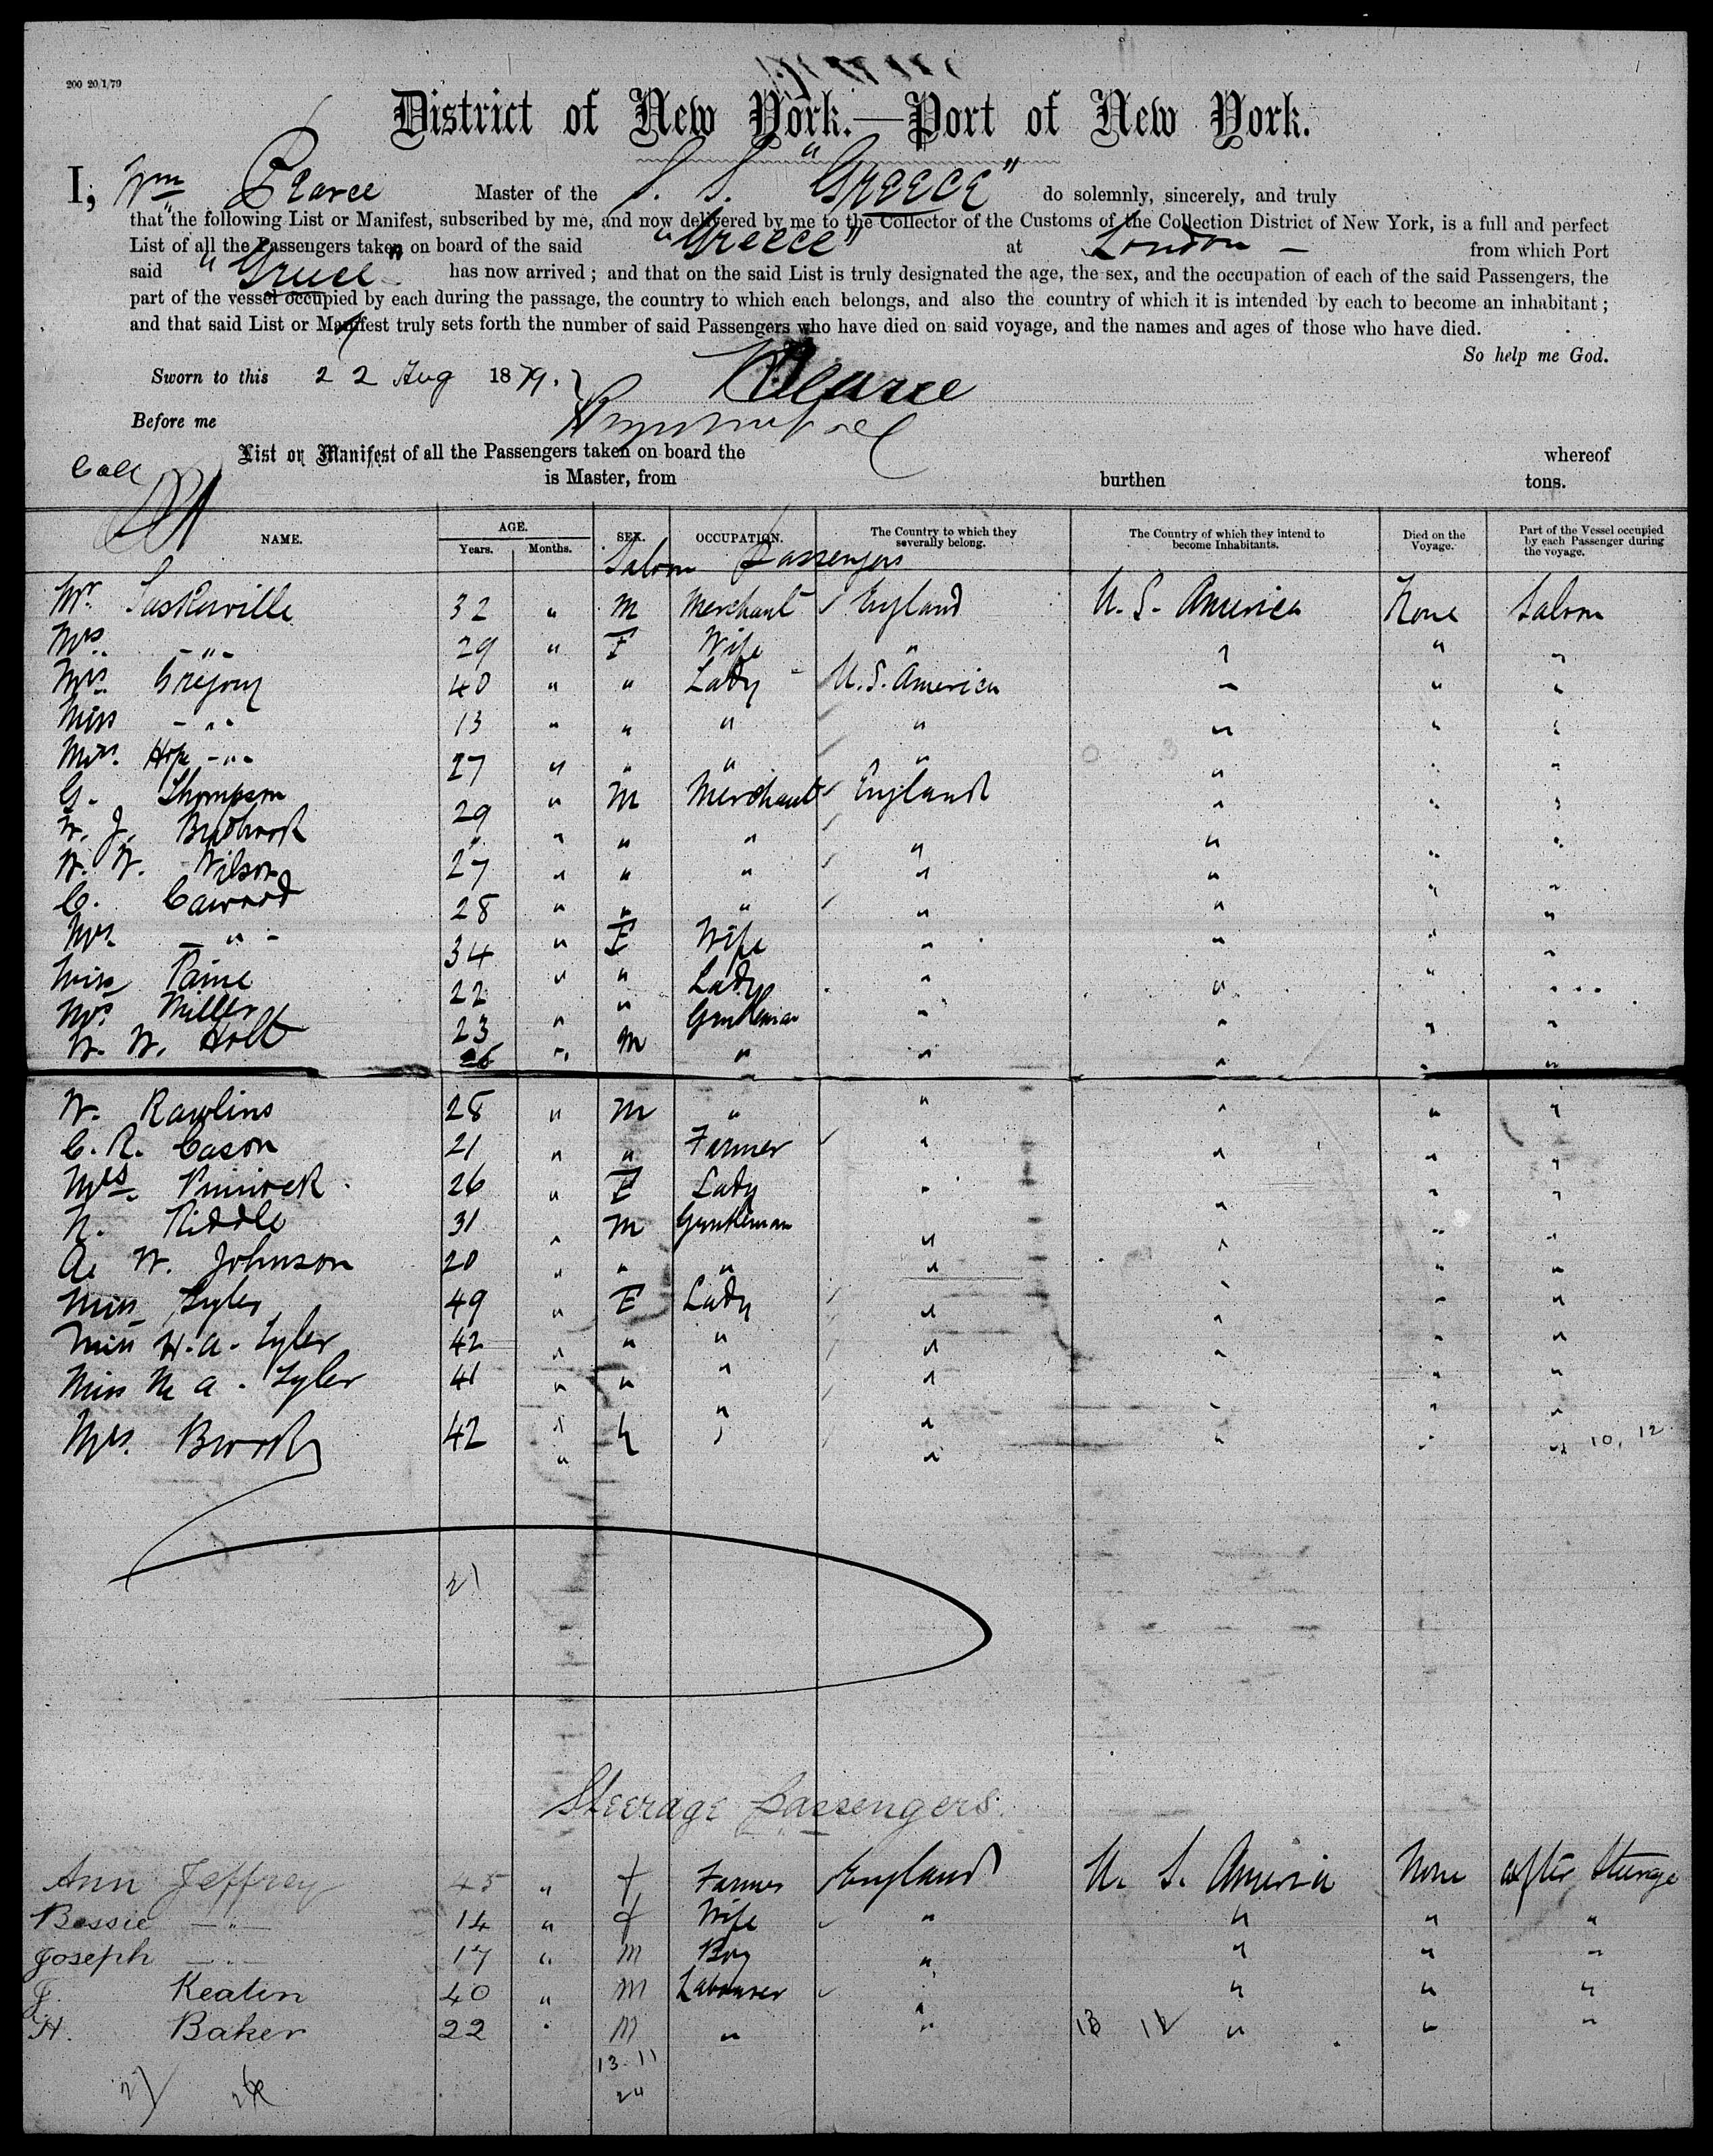 200 20/1/79
District of New York.—Port of New York.
I, Wm Pearce Master of the S. S. "GREECE" do solemnly, sincerely, and truly
that the following List or Manifest, subscribed by me, and now delivered by me to the Collector of the Customs of the Collection District of New York, is a full and perfect
List of all the Passengers taken on board of the said "Greece" at London — from which Port
said "Greece" has now arrived; and that on the said List is truly designated the age, the sex, and the occupation of each of the said Passengers, the
part of the vessel occupied by each during the passage, the country to which each belongs, and also the country of which it is intended by each to become an inhabitant;
and that said List or Manifest truly sets forth the number of said Passengers who have died on said voyage, and the names and ages of those who have died.
So help me God.
Sworn to this 22 Aug 1879. Pearce
Before me
List or Manifest of all the Passengers taken on board the whereof
is Master, from burthen tons.
NAME. AGE. Years. Months. SEX. OCCUPATION. The Country to which they severally belong. The Country of which they intend to become Inhabitants. Died on the Voyage. Part of the Vessel occupied by each Passenger during the voyage.
Saloon Passengers
Mr. 32 " M Merchant England U. S. America None Saloon
Mrs. -"- 29 " F Wife " " " "
Mrs. Gregory 40 " " Lady U. S. America " " "
Miss -"- 13 " " " " " " "
Hope -"- 27 " " " " " " "
G. Thompson 29 " M Merchant England " " "
W. J. " " " " " " " "
W. W. Wilson 27 " " " " " " "
C. Cawood 28 " " " " " " "
Mrs. -"- 34 " F Wife " " " "
Miss Paine 22 " " Lady " " " "
Miller 23 " " Gentleman " " " "
W. W. Holt 26 " M " " " " "
W. Rawlins 28 " M " " " " "
C. R. Cason 21 " " Farmer " " " "
Mrs. 26 " F Lady " " " "
N. Riddle 31 " M Gentleman " " " "
A. W. Johnson 20 " " " " " " "
Miss Tyler 49 " F Lady " " " "
Miss H. A. Tyler 42 " " " " " " "
Miss M A. Tyler 41 " " " " " " "
Mrs. Brooks 42 " " " " " " " 10, 12
21
Steerage Passengers.
Ann Jeffrey 45 " f Farmer England U. S. America None after Steerage
Bessie -"- 14 " f Wife " " " "
Joseph -"- 17 " M Boy " " " "
J. Keatin 40 " M Labourer " " " "
H. Baker 22 " M " " 13 11 " " "
13. 11
24